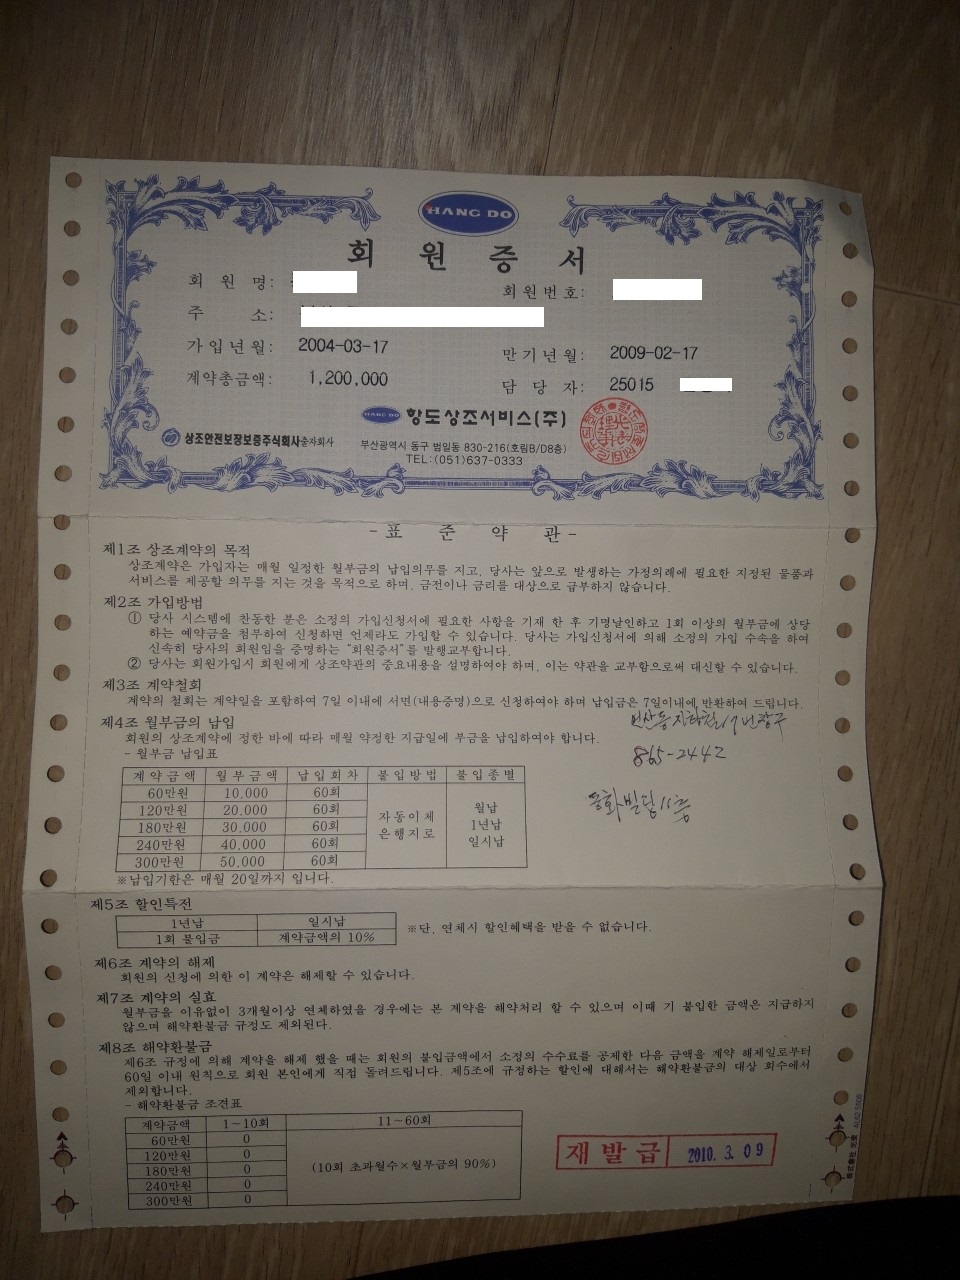 HANG DO
회 원 증 서
회 원 명:
회원번호:
주 소:
가입년월: 2004-03-17
만기년월: 2009-02-17
계약총금액: 1,200,000
담 당 자: 25015
HANG DO 항도상조서비스(주)
상조안전보장보증주식회사출자회사
부산광역시 동구 범일동 830-216(호림B/D8층)
TEL:(051)637-0333
- 표 준 약 관 -
제1조 상조계약의 목적
상조계약은 가입자는 매월 일정한 월부금의 납입의무를 지고, 당사는 앞으로 발생하는 가정의례에 필요한 지정된 물품과
서비스를 제공할 의무를 지는 것을 목적으로 하며, 금전이나 금리를 대상으로 급부하지 않습니다.
제2조 가입방법
① 당사 시스템에 찬동한 분은 소정의 가입신청서에 필요한 사항을 기재 한 후 기명날인하고 1회 이상의 월부금에 상당
하는 예약금을 첨부하여 신청하면 언제라도 가입할 수 있습니다. 당사는 가입신청서에 의해 소정의 가입 수속을 하여
신속히 당사의 회원임을 증명하는 "회원증서"를 발행교부합니다.
② 당사는 회원가입시 회원에게 상조약관의 중요내용을 설명하여야 하며, 이는 약관을 교부함으로써 대신할 수 있습니다.
제3조 계약철회
계약의 철회는 계약일을 포함하여 7일 이내에 서면(내용증명)으로 신청하여야 하며 납입금은 7일이내에 반환하여 드립니다.
제4조 월부금의 납입
회원의 상조계약에 정한 바에 따라 매월 약정한 지급일에 부금을 납입하여야 합니다.
- 월부금 납입표
계약금액 월부금액 납입회차 불입방법 불입종별
60만원 10,000 60회
120만원 20,000 60회
180만원 30,000 60회
240만원 40,000 60회
300만원 50,000 60회
자동이체
은행지로
월납
1년납
일시납
※납입기한은 매월 20일까지 입니다.
865-2442
빌딩 11층
제5조 할인특전
1년납 일시납
1회 불입금 계약금액의 10%
※단, 연체시 할인혜택을 받을 수 없습니다.
제6조 계약의 해제
회원의 신청에 의한 이 계약은 해제할 수 있습니다.
제7조 계약의 실효
월부금을 이유없이 3개월이상 연체하였을 경우에는 본 계약을 해약처리 할 수 있으며 이때 기 불입한 금액은 지급하지
않으며 해약환불금 규정도 제외된다.
제8조 해약환불금
제6조 규정에 의해 계약을 해제 했을 때는 회원의 불입금액에서 소정의 수수료를 공제한 다음 금액을 계약 해제일로부터
60일 이내 원칙으로 회원 본인에게 직접 돌려드립니다. 제5조에 규정하는 할인에 대해서는 해약환불금의 대상 회수에서
제외합니다.
- 해약환불금 조견표
계약금액 1~10회 11~60회
60만원 0
120만원 0
180만원 0
240만원 0
300만원 0
(10회 초과월수×월부금의 90%)
재발급 2010. 3. 09